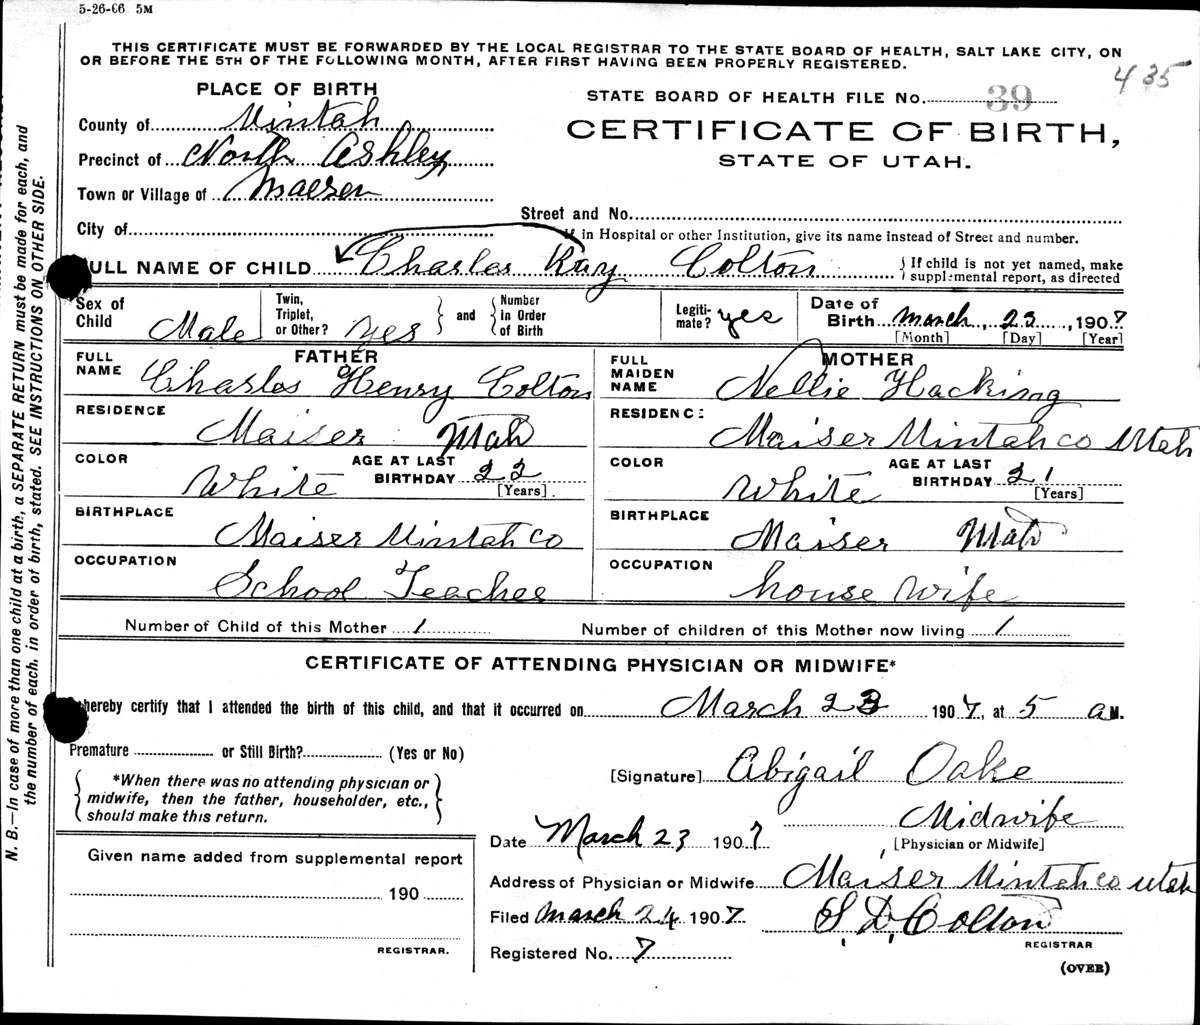 5-26-06 5M
THIS CERTIFICATE MUST BE FORWARDED BY THE LOCAL REGISTRAR TO THE STATE BOARD OF HEALTH, SALT LAKE CITY, ON
OR BEFORE THE 5TH OF THE FOLLOWING MONTH, AFTER FIRST HAVING BEEN PROPERLY REGISTERED.
435
PLACE OF BIRTH
STATE BOARD OF HEALTH FILE No. 39
County of Uintah
CERTIFICATE OF BIRTH,
Precinct of North Ashley
STATE OF UTAH.
Town or Village of Maeser
Street and No.
City of
If in Hospital or other Institution, give its name instead of Street and number.
FULL NAME OF CHILD Charles Ray Colton
{ If child is not yet named, make
supplemental report, as directed
Sex of Child Male
Twin, Triplet, or Other? yes
and
Number in Order of Birth
Legiti-mate? yes
Date of Birth March, 23, 1907
[Month] [Day] [Year]
FATHER
FULL NAME Charles Henry Colton
RESIDENCE Maiser Utah
COLOR White
AGE AT LAST BIRTHDAY 22
[Years]
BIRTHPLACE Maiser Uintah Co
OCCUPATION School Teacher
MOTHER
FULL MAIDEN NAME Nellie Hacking
RESIDENCE Maiser Uintah co Utah
COLOR White
AGE AT LAST BIRTHDAY 21
[Years]
BIRTHPLACE Maiser Utah
OCCUPATION house wife
Number of Child of this Mother 1
Number of children of this Mother now living 1
CERTIFICATE OF ATTENDING PHYSICIAN OR MIDWIFE*
hereby certify that I attended the birth of this child, and that it occurred on March 23 1907, at 5 a M.
Premature or Still Birth? (Yes or No)
*When there was no attending physician or
midwife, then the father, householder, etc.,
should make this return.
[Signature] Abigail Oake
Midwife
Date March 23 1907
[Physician or Midwife]
Given name added from supplemental report
190
REGISTRAR.
Address of Physician or Midwife Maiser Uintah co utah
Filed March 24 1907 S. D. Colton
REGISTRAR
Registered No. 7
(OVER)
N. B.—In case of more than one child at a birth, a SEPARATE RETURN must be made for each, and
the number of each, in order of birth, stated. SEE INSTRUCTIONS ON OTHER SIDE.